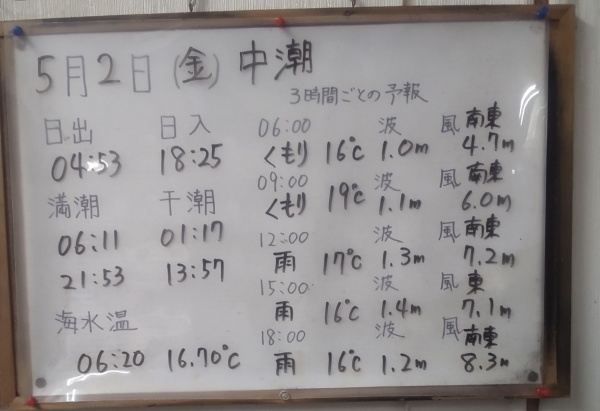 5月2日(金)中潮
3時間ごとの予報
日出 日入
04:53 18:25
満潮 干潮
06:11 01:17
21:53 13:57
海水温
06:20 16.70℃
06:00 波 風 南東
くもり 16℃ 1.0m 4.7m
09:00 波 風 南東
くもり 19℃ 1.1m 6.0m
12:00 波 風 南東
雨 17℃ 1.3m 7.2m
15:00 波 風 東
雨 16℃ 1.4m 7.1m
18:00 波 風 南東
雨 16℃ 1.2m 8.3m